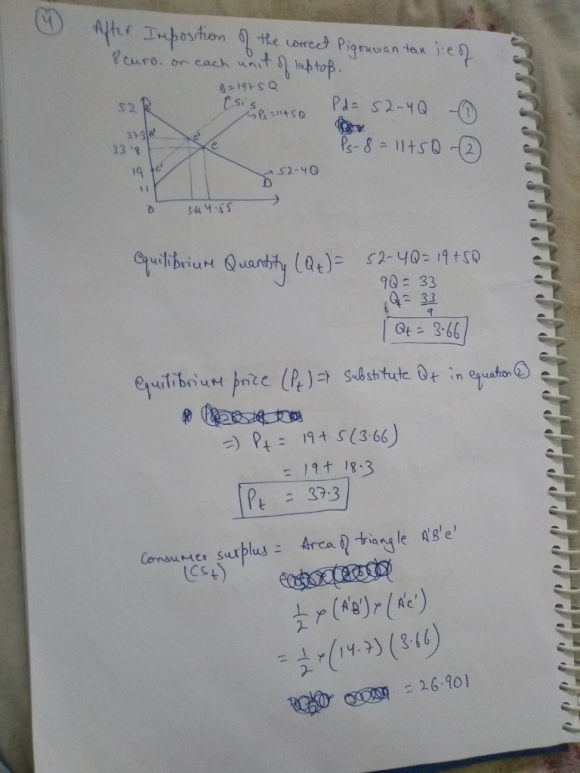 4
After Imposition of the correct Pigouvian tax i.e of
8 euro. on each unit of laptop.
P=19+5Q
S
52
Ps=11+5Q
Pd= 52-4Q -①
37.3 A'
e'
33.8
e
Ps-8 = 11+5Q -②
19
c'
52-4Q
11
D
0
3.66
4.55
Equilibrium Quantity (Qt) = 52-4Q = 19+5Q
9Q = 33
Qt = 33
9
Qt = 3.66
Equilibrium price (Pt) => Substitute Qt in equation ②
=> Pt = 19 + 5(3.66)
= 19 + 18.3
Pt = 37.3
Consumer surplus = Area of triangle A'B'e'
(CSt)
1/2 × (A'B') × (A'e')
= 1/2 × (14.7) (3.66)
= 26.901